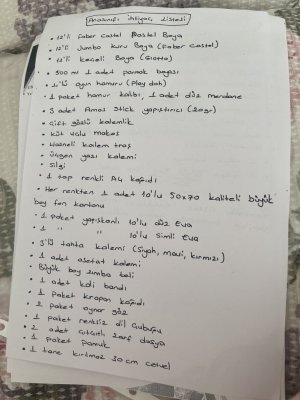 Anasınıfı ihtiyaç listesi
• 12'li Faber Castel Pastel Boya
• 12'li Jumbo kuru Boya (Faber Castel)
• 12'li keçeli Boya (Giotto)
• 500 ml 1 adet parmak boyası
• 1'li oyun hamuru (Play doh)
• 1 paket hamur kalıbı, 1 adet düz merdane
• 3 adet Amos Stick yapıştırıcı (20gr)
• Çift gözlü kalemlik
• Küt uçlu makas
• Hazneli kalem traş
• Üçgen yazı kalemi
• Silgi
• 1 top renkli A4 kağıdı
• Her renkten 1 adet 10'lu 50x70 kaliteli büyük
boy fon kartonu
• 1 paket yapışkanlı 10'lu düz Eva
• 1 " " 10'lu simli Eva
• 3'lü tahta kalemi (Siyah, mavi, kırmızı)
• 1 adet asetat kalemi
• Büyük boy zımba teli
• 1 adet koli bandı
• 1 paket krapon kağıdı
• 1 paket oynar göz
• 1 paket renksiz dil çubuğu
• 2 adet çıtçıtlı zarf dosya
• 1 paket pamuk
• 1 tane kırılmaz 30 cm cetvel